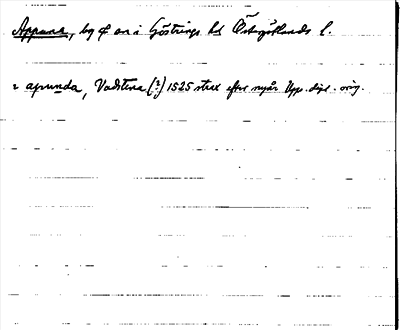 Appuna, by o. sn i Göstrings hd Östergötlands l.
i apunda, Vadstena (?) 1525 strax efter nyår Upps. dipl. orig.